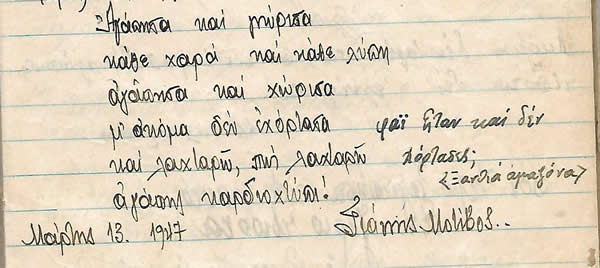 Ἀγάπησα καὶ γνώρισα
κάθε χαρά καὶ κάθε λύπη
ἀγάπησα καὶ χώρισα
μ' ἀκόμα δὲν ἐχόρτασα φαΐ ἦταν καὶ δέν
καὶ λαχταρῶ, πῶς λαχταρῶ χόρταδες;
ἀγάπης καρδιοχτύπι! <Ξανθιά ἀμαζόνα>
Μάρτης 13. 1947 Γιάννης Μοτίβος..